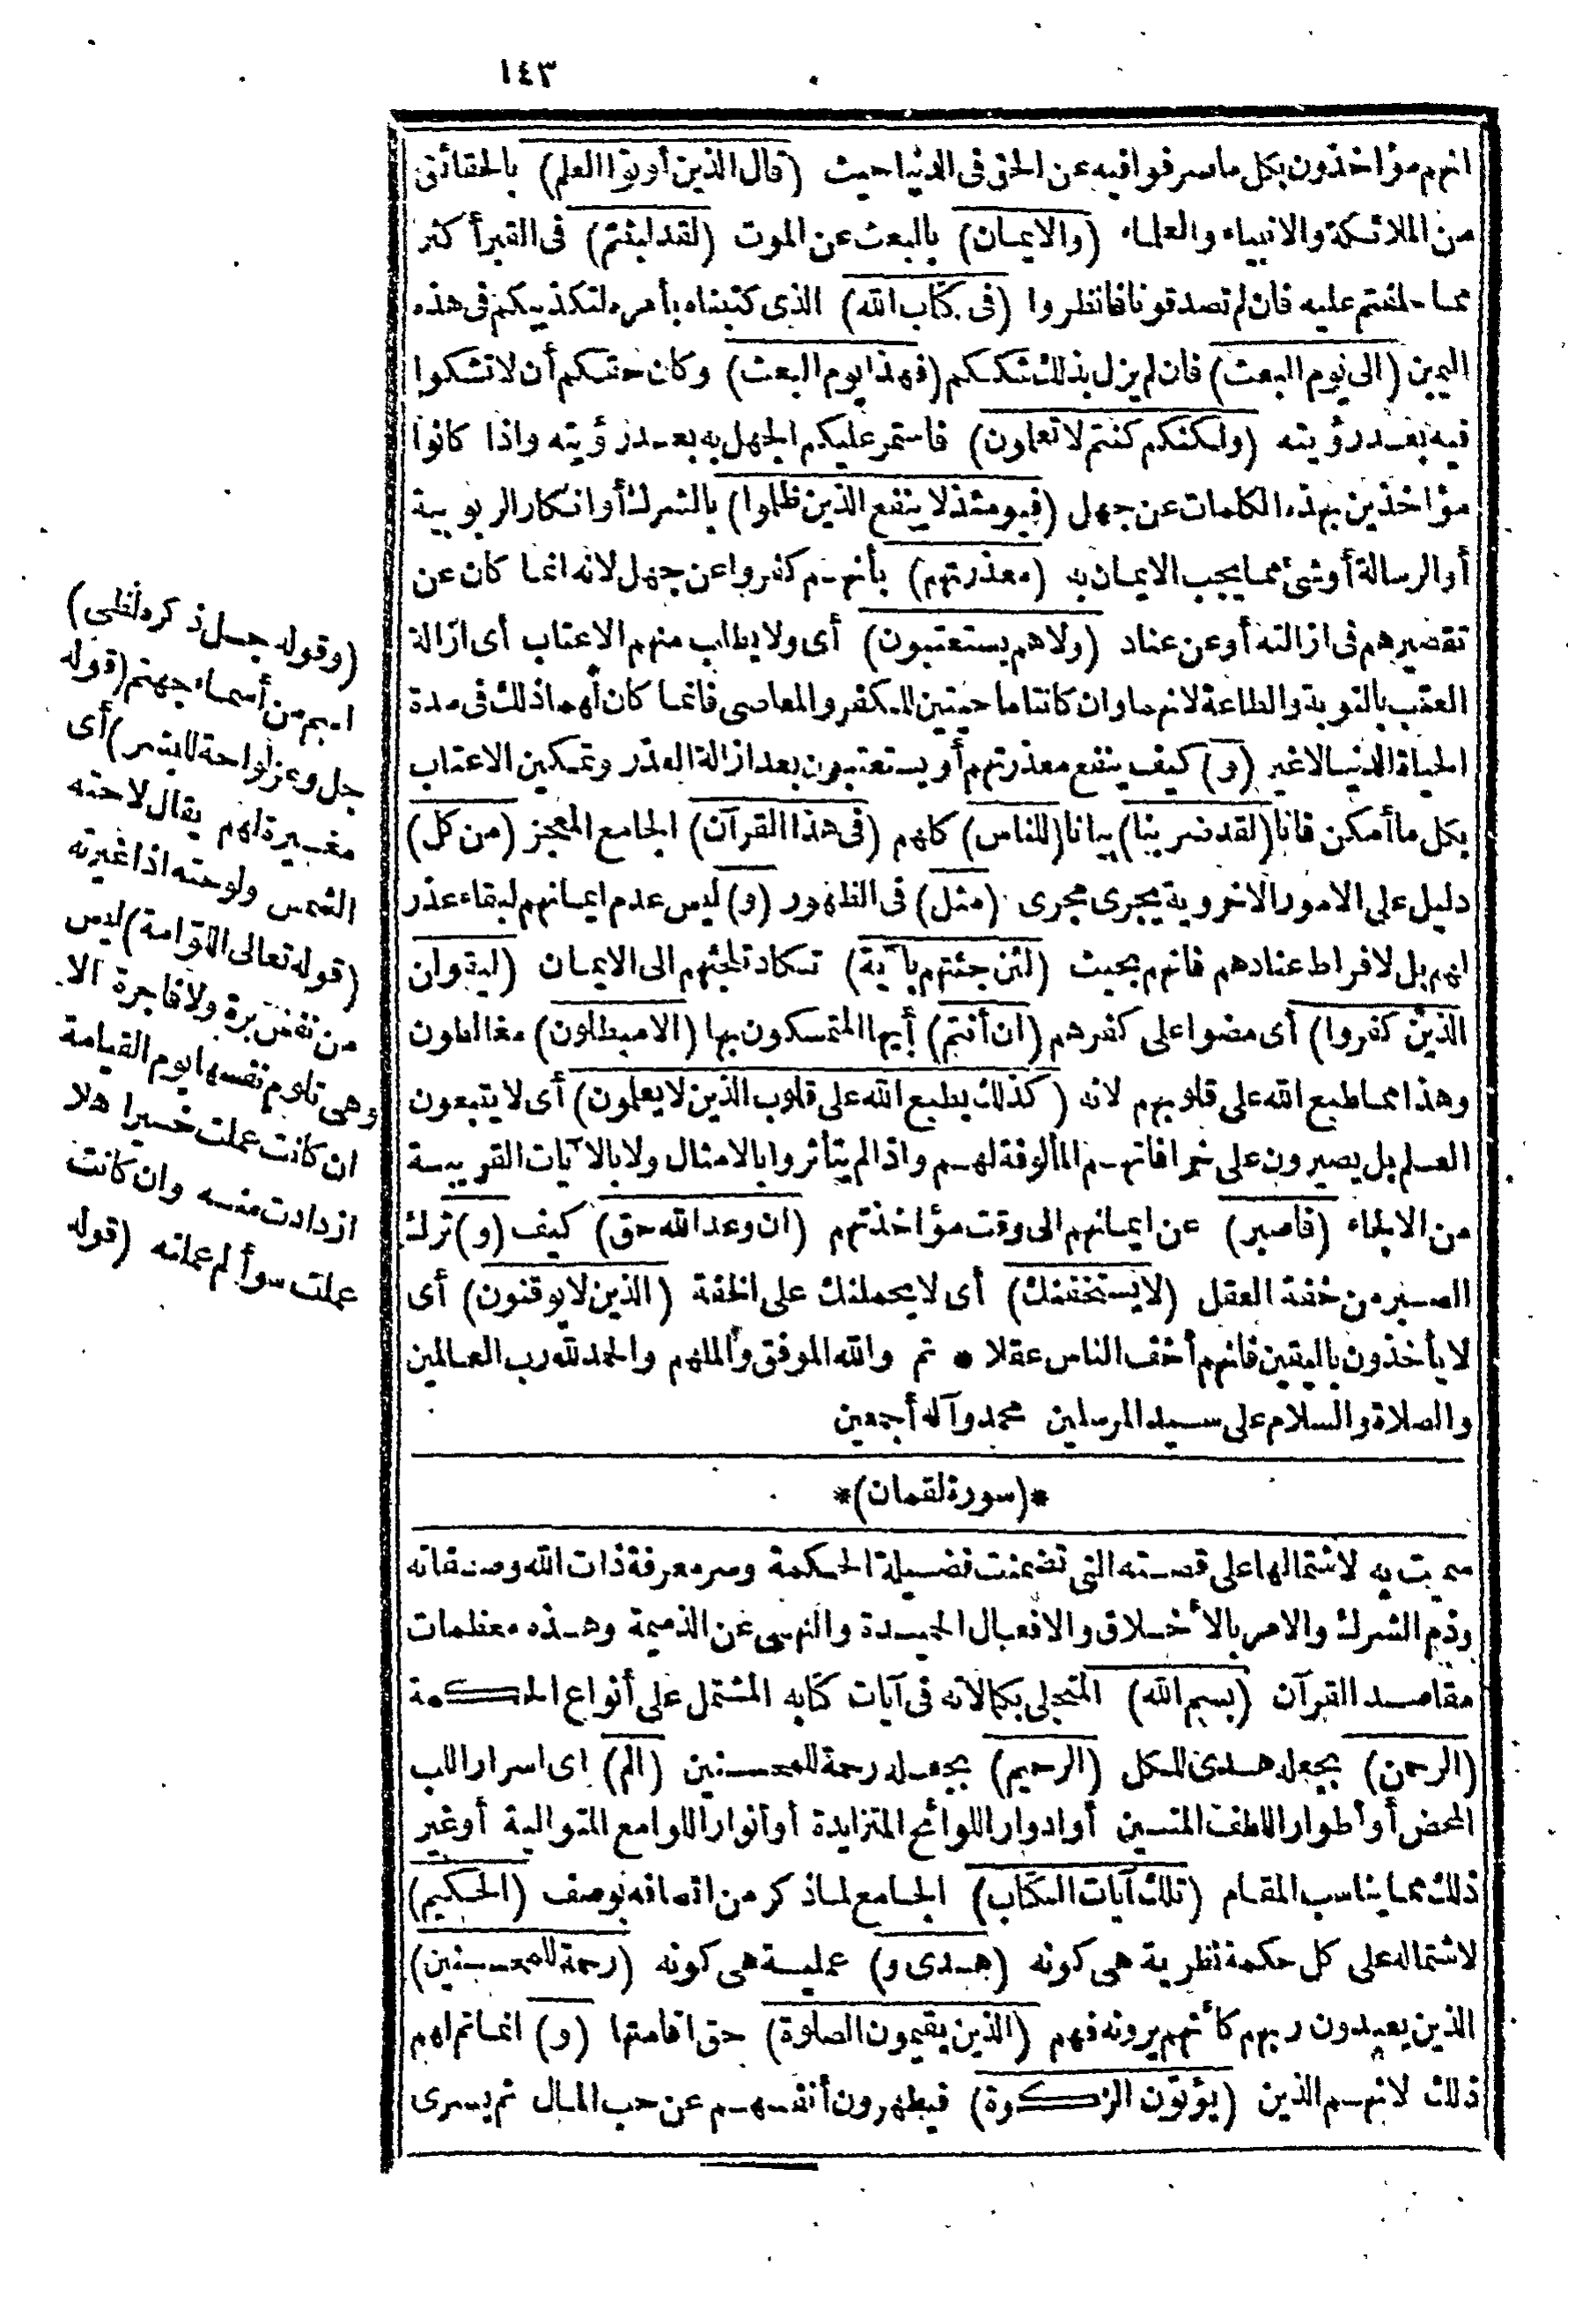 ١٤٣
انهم مؤاخذون بكل ما صرفوا فيه عن الحق فى الدنيا حيث (قال الذين أوتوا العلم) بالحقائق
من الملائكة والانبياء والعلماء (والايمان) بالبعث عن الموت (لقد لبثتم) فى القبر أكثر
مما حلفتم عليه فان لم تصدقونا فانظروا (فى كتاب الله) الذى كتبناه بأمره لتكذيبكم فى هذه
اليمين (الى يوم البعث) فان لم يزل بذلك شككم (فهذا يوم البعث) وكان حقكم أن لا تشكوا
فيه بعد رؤيته (ولكنكم كنتم لا تعلمون) فاستمر عليكم الجهل به بعد رؤيته واذا كانوا
مؤاخذين بهذه الكلمات عن جهل (فيومئذ لا ينفع الذين ظلموا) بالشرك أو انكار الربوبية
أو الرسالة أو شئ مما يجب الايمان به (معذرتهم) بأنهم كفروا عن جهل لانه انما كان عن
تقصيرهم فى ازالته أو عن عناد (ولا هم يستعتبون) أى ولا يطلب منهم الاعتاب أى ازالة
العتب بالتوبة والطاعة لانهما وان كانتا ماحيتين للكفر والمعاصى فانما كان لهما ذلك فى مدة
الحياة الدنيا لا غير (و) كيف ينفع معذرتهم أو يستعتبون بعد ازالة العذر وتمكين الاعتاب
بكل ما أمكن فانا (لقد ضربنا) بيانا (للناس) كلهم (فى هذا القرآن) الجامع المعجز (من كل)
دليل على الامور الاخروية يجرى مجرى (مثل) فى الظهور (و) ليس عدم ايمانهم لبقاء عذر
لهم بل لافراط عنادهم فانهم بحيث (لئن جئتهم بآية) تكاد تلجئهم الى الايمان (ليقولن
الذين كفروا) أى مضوا على كفرهم (ان أنتم) أيها المتمسكون بها (الا مبطلون) مغالطون
وهذا مما طبع الله على قلوبهم لانه (كذلك يطبع الله على قلوب الذين لا يعلمون) أى لا يتبعون
العلم بل يصيرون على خرافاتهم المألوفة لهم واذا لم يتأثروا بالامثال ولا بالآيات القريبة
من الالجاء (فاصبر) عن ايمانهم الى وقت مؤاخذتهم (ان وعد الله حق) كيف (و) ترك
الصبر من خفة العقل (لا يستخفنك) أى لا يحملنك على الخفة (الذين لا يوقنون) أى
لا يأخذون باليقين فانهم أخف الناس عقلا * تم والله الموفق والملهم والحمد لله رب العالمين
والصلاة والسلام على سيد المرسلين محمد وآله أجمعين
*(سورة لقمان)*
سميت به لاشتمالها على قصته التى تضمنت فضيلة الحكمة وسر معرفة ذات الله وصفاته
وذم الشرك والامر بالأخلاق والافعال الحميدة والنهى عن الذميمة وهذه معظمات
مقاصد القرآن (بسم الله) المتجلى بكمالاته فى آيات كتابه المشتمل على أنواع الحكمة
(الرحمن) بجعله هدى للكل (الرحيم) بجعله رحمة للمحسنين (الم) اى اسرار اللب
المحض أو أطوار اللطف المتين أو ادوار اللوائح المتزايدة أو أنوار اللوامع المتوالية أو غير
ذلك مما يناسب المقام (تلك آيات الكتاب) الجامع لما ذكر من اتصافه بوصف (الحكيم)
لاشتماله على كل حكمة نظرية هى كونه (هدى و) عملية هى كونه (رحمة للمحسنين)
الذين يعبدون ربهم كأنهم يرونه فهم (الذين يقيمون الصلوة) حق اقامتها (و) انما تم لهم
ذلك لانهم الذين (يؤتون الزكوة) فيطهرون أنفسهم عن حب المال ثم يسرى
(وقوله جل ذكره لظى)
اسم من أسماء جهنم (قوله
جل وعز لواحة للبشر) أى
مغيرة لهم يقال لاحته
الشمس ولوحته اذا غيرته
(قوله تعالى اللوامة) ليس
من نفس برة ولا فاجرة الا
وهى تلوم نفسها يوم القيامة
ان كانت عملت خيرا هلا
ازدادت منه وان كانت
عملت سوأ لم عملته (قوله